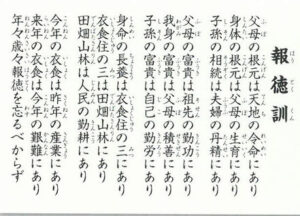 報徳訓
父母の根元は天地の令命にあり
身体の根元は父母の生育にあり
子孫の相続は夫婦の丹精にあり
父母の富貴は祖先の勤功にあり
我身の富貴は父母の積善にあり
子孫の富貴は自己の勤労にあり
身命の長養は衣食住の三にあり
衣食住の三は田畑山林にあり
田畑山林は人民の勤耕にあり
今年の衣食は昨年の産業にあり
来年の衣食は今年の艱難にあり
年々歳々報徳を忘るべからず